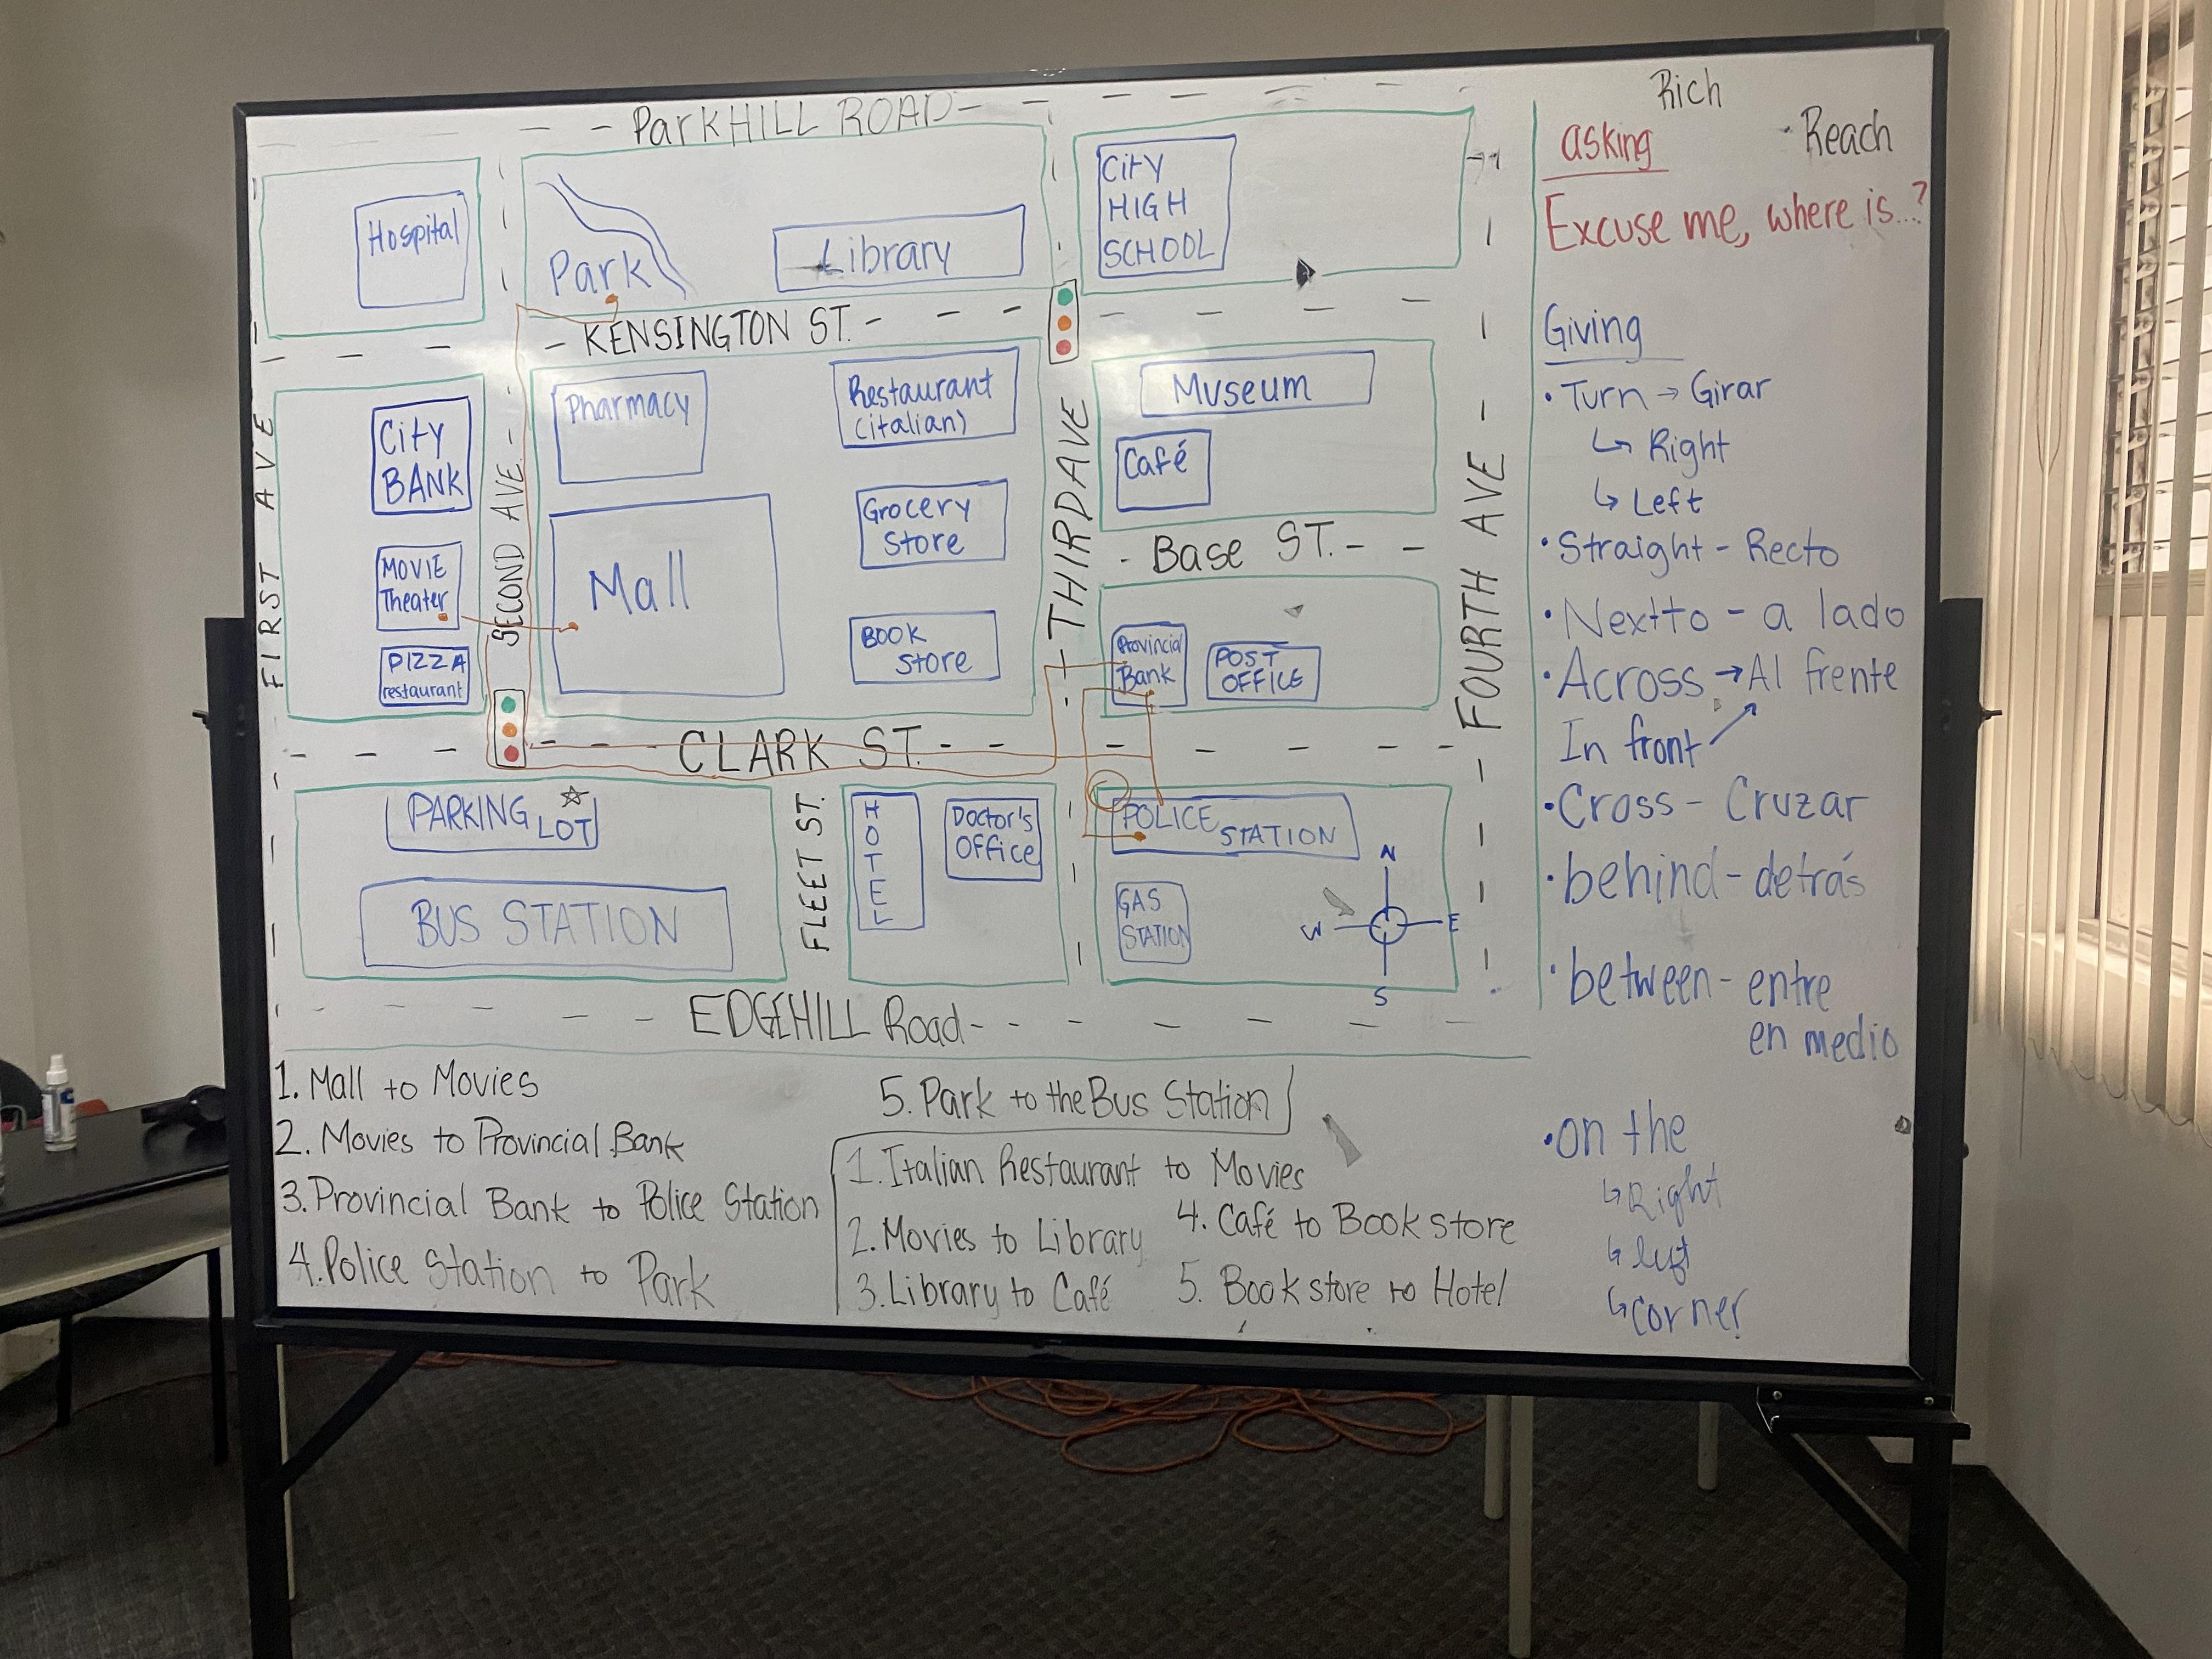 ParkHILL ROAD
Hospital
Park
Library
CITY
HIGH
SCHOOL
KENSINGTON ST.
FIRST AVE
CITY
BANK
MOVIE
Theater
PIZZA
restaurant
SECOND AVE.
Pharmacy
Mall
Restaurant
(italian)
Grocery
Store
BOOK
Store
THIRD AVE
Museum
Café
Base ST.
Provincial
Bank
POST
OFFICE
FOURTH AVE
CLARK ST.
PARKING
LOT
BUS STATION
FLEET ST.
HOTEL
Doctor's
Office
POLICE
STATION
GAS
STATION
N
W
E
S
EDGEHILL Road
1. Mall to Movies
2. Movies to Provincial Bank
3. Provincial Bank to Police Station
4. Police Station to Park
5. Park to the Bus Station
1. Italian Restaurant to Movies
2. Movies to Library
3. Library to Café
4. Café to Book store
5. Book store to Hotel
Rich
asking
Reach
Excuse me, where is...?
Giving
• Turn → Girar
↳ Right
↳ Left
• Straight - Recto
• Next to - a lado
• Across → Al frente
In front
• Cross - Cruzar
• behind - detrás
• between - entre
en medio
• on the
↳ Right
↳ left
↳ corner